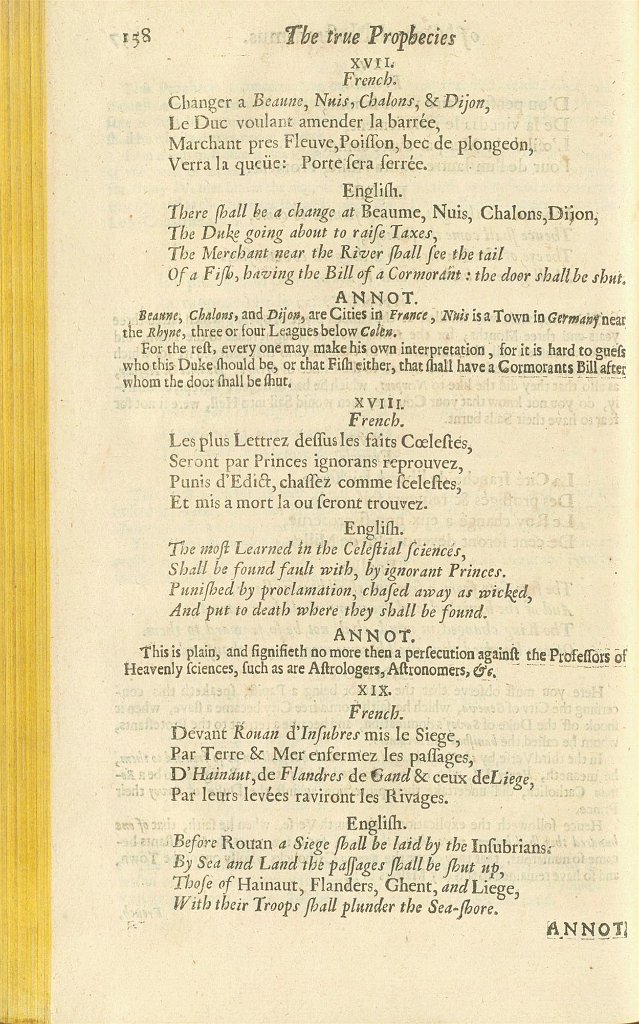 158 The true Prophecies
XVII.
French.
Changer a Beaune, Nuis, Chalons, & Dijon,
Le Duc voulant amender la barrée,
Marchant pres Fleuve,Poiſſon, bec de plongeon,
Verra la queüe: Porte ſera ſerrée.
Engliſh.
There ſhall be a change at Beaume, Nuis, Chalons,Dijon,
The Duke going about to raiſe Taxes,
The Merchant near the River ſhall ſee the tail
Of a Fiſh, having the Bill of a Cormorant : the door ſhall be ſhut.
ANNOT.
Beaune, Chalons, and Dijon, are Cities in France, Nuis is a Town in Germany near
the Rhyne, three or four Leagues below Colen.
For the reſt, every one may make his own interpretation, for it is hard to gueſs
who this Duke ſhould be, or that Fiſh either, that ſhall have a Cormorants Bill after
whom the door ſhall be ſhut.
XVIII.
French.
Les plus Lettrez deſſus les faits Cœleſtes,
Seront par Princes ignorans reprouvez,
Punis d'Edict, chaſſez comme ſceleſtes,
Et mis a mort la ou ſeront trouvez.
Engliſh.
The moſt Learned in the Celeſtial ſciences,
Shall be found fault with, by ignorant Princes.
Puniſhed by proclamation, chaſed away as wicked,
And put to death where they ſhall be found.
ANNOT.
This is plain, and ſignifieth no more then a perſecution againſt the Profeſſors of
Heavenly ſciences, ſuch as are Aſtrologers, Aſtronomers, &c.
XIX.
French.
Devant Rouan d'Inſubres mis le Siege,
Par Terre & Mer enfermez les paſſages,
D'Hainaut, de Flandres de Gand & ceux de Liege,
Par leurs levées raviront les Rivages.
Engliſh.
Before Rouan a Siege ſhall be laid by the Inſubrians.
By Sea and Land the paſſages ſhall be ſhut up,
Thoſe of Hainaut, Flanders, Ghent, and Liege,
With their Troops ſhall plunder the Sea-ſhore.
ANNOT.